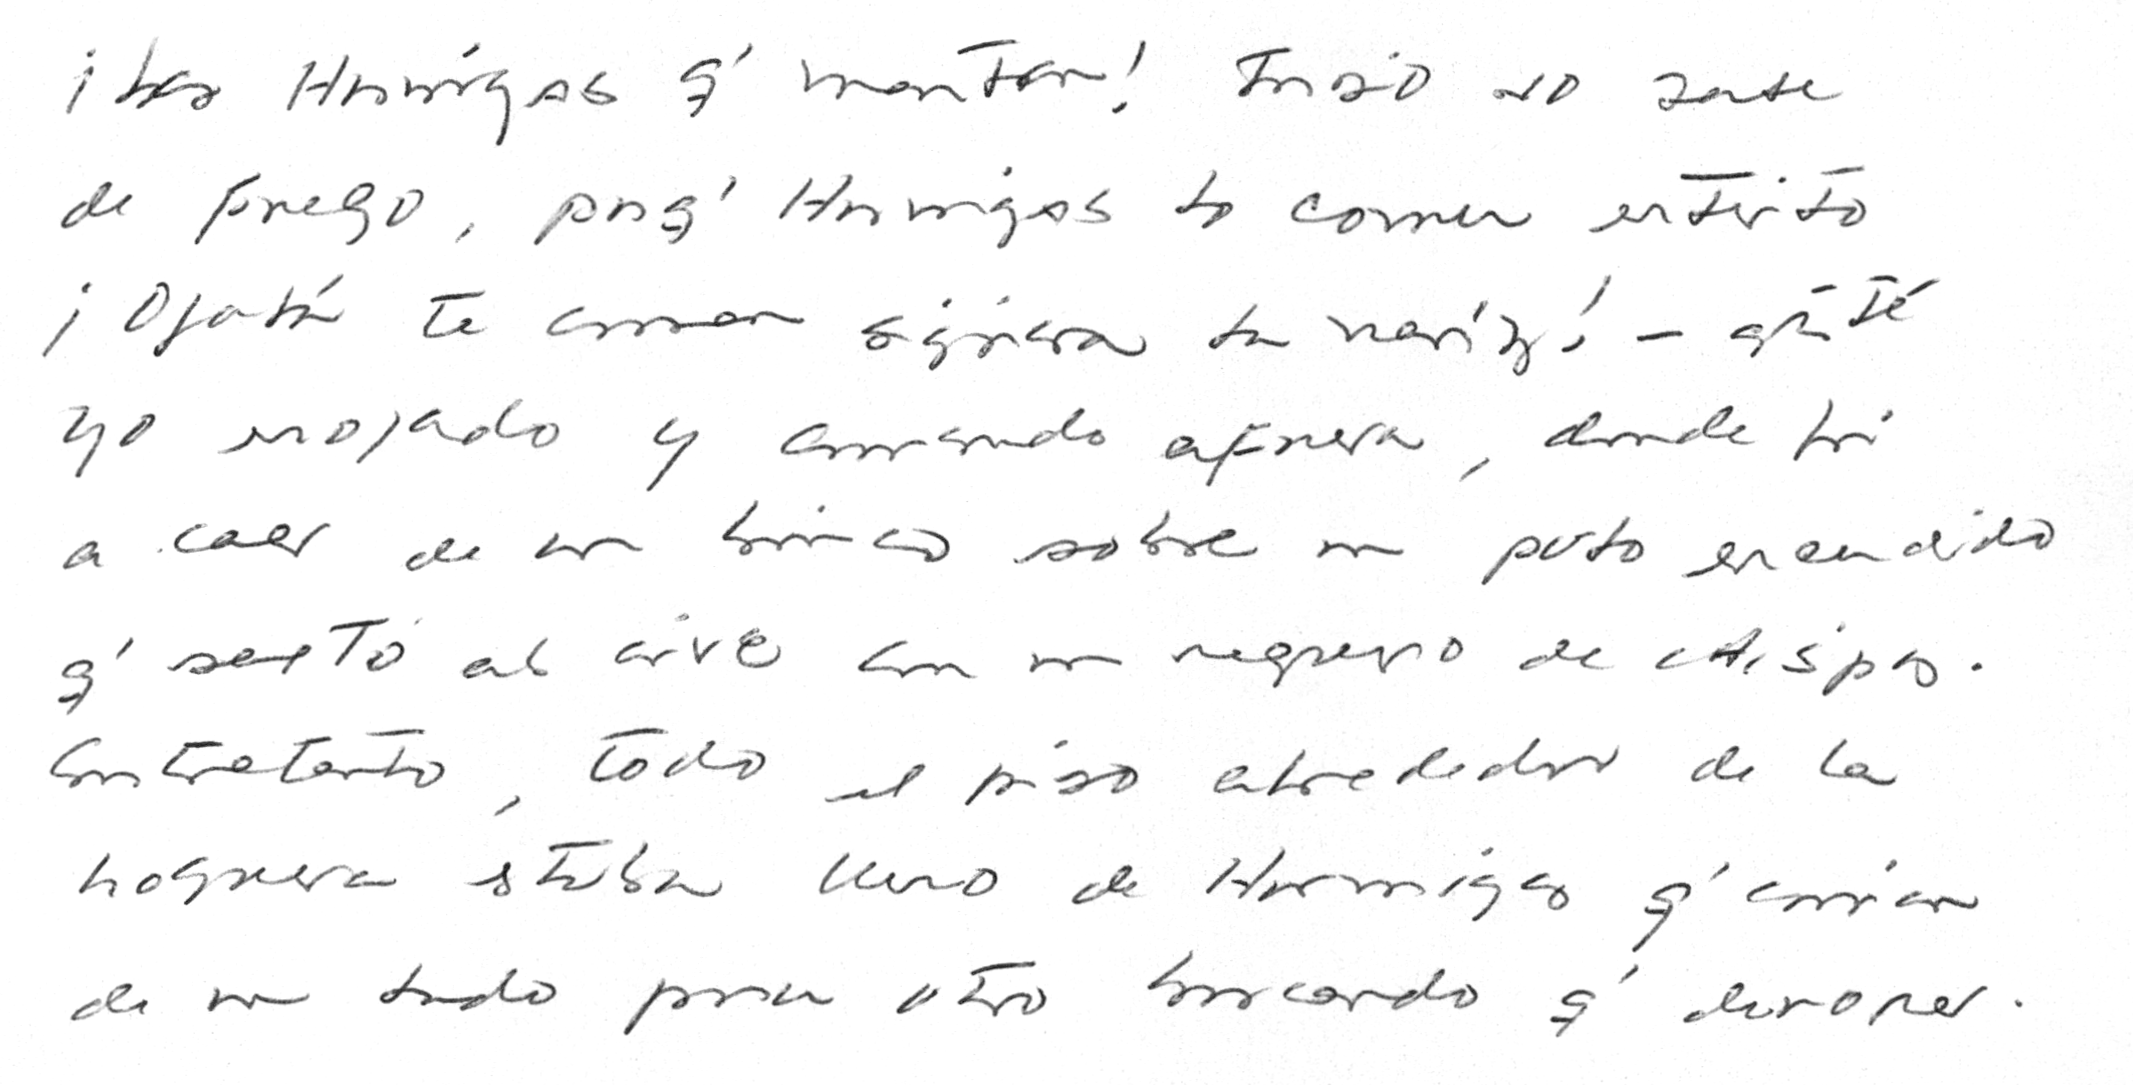 ¡Las Hormigas q' montan! Tusio no sale
de fuego, porq' Hormigas lo comen enterito
¡Ojalá te coman siquiera la nariz! – grité
yo enojado y corriendo afuera, donde fui
a caer de un brinco sobre un palo encendido
q' saltó al aire con un reguero de chispas.
Entretanto, todo el piso alrededor de la
hoguera estaba lleno de Hormigas q' corrían
de un lado para otro buscando q' devorar.